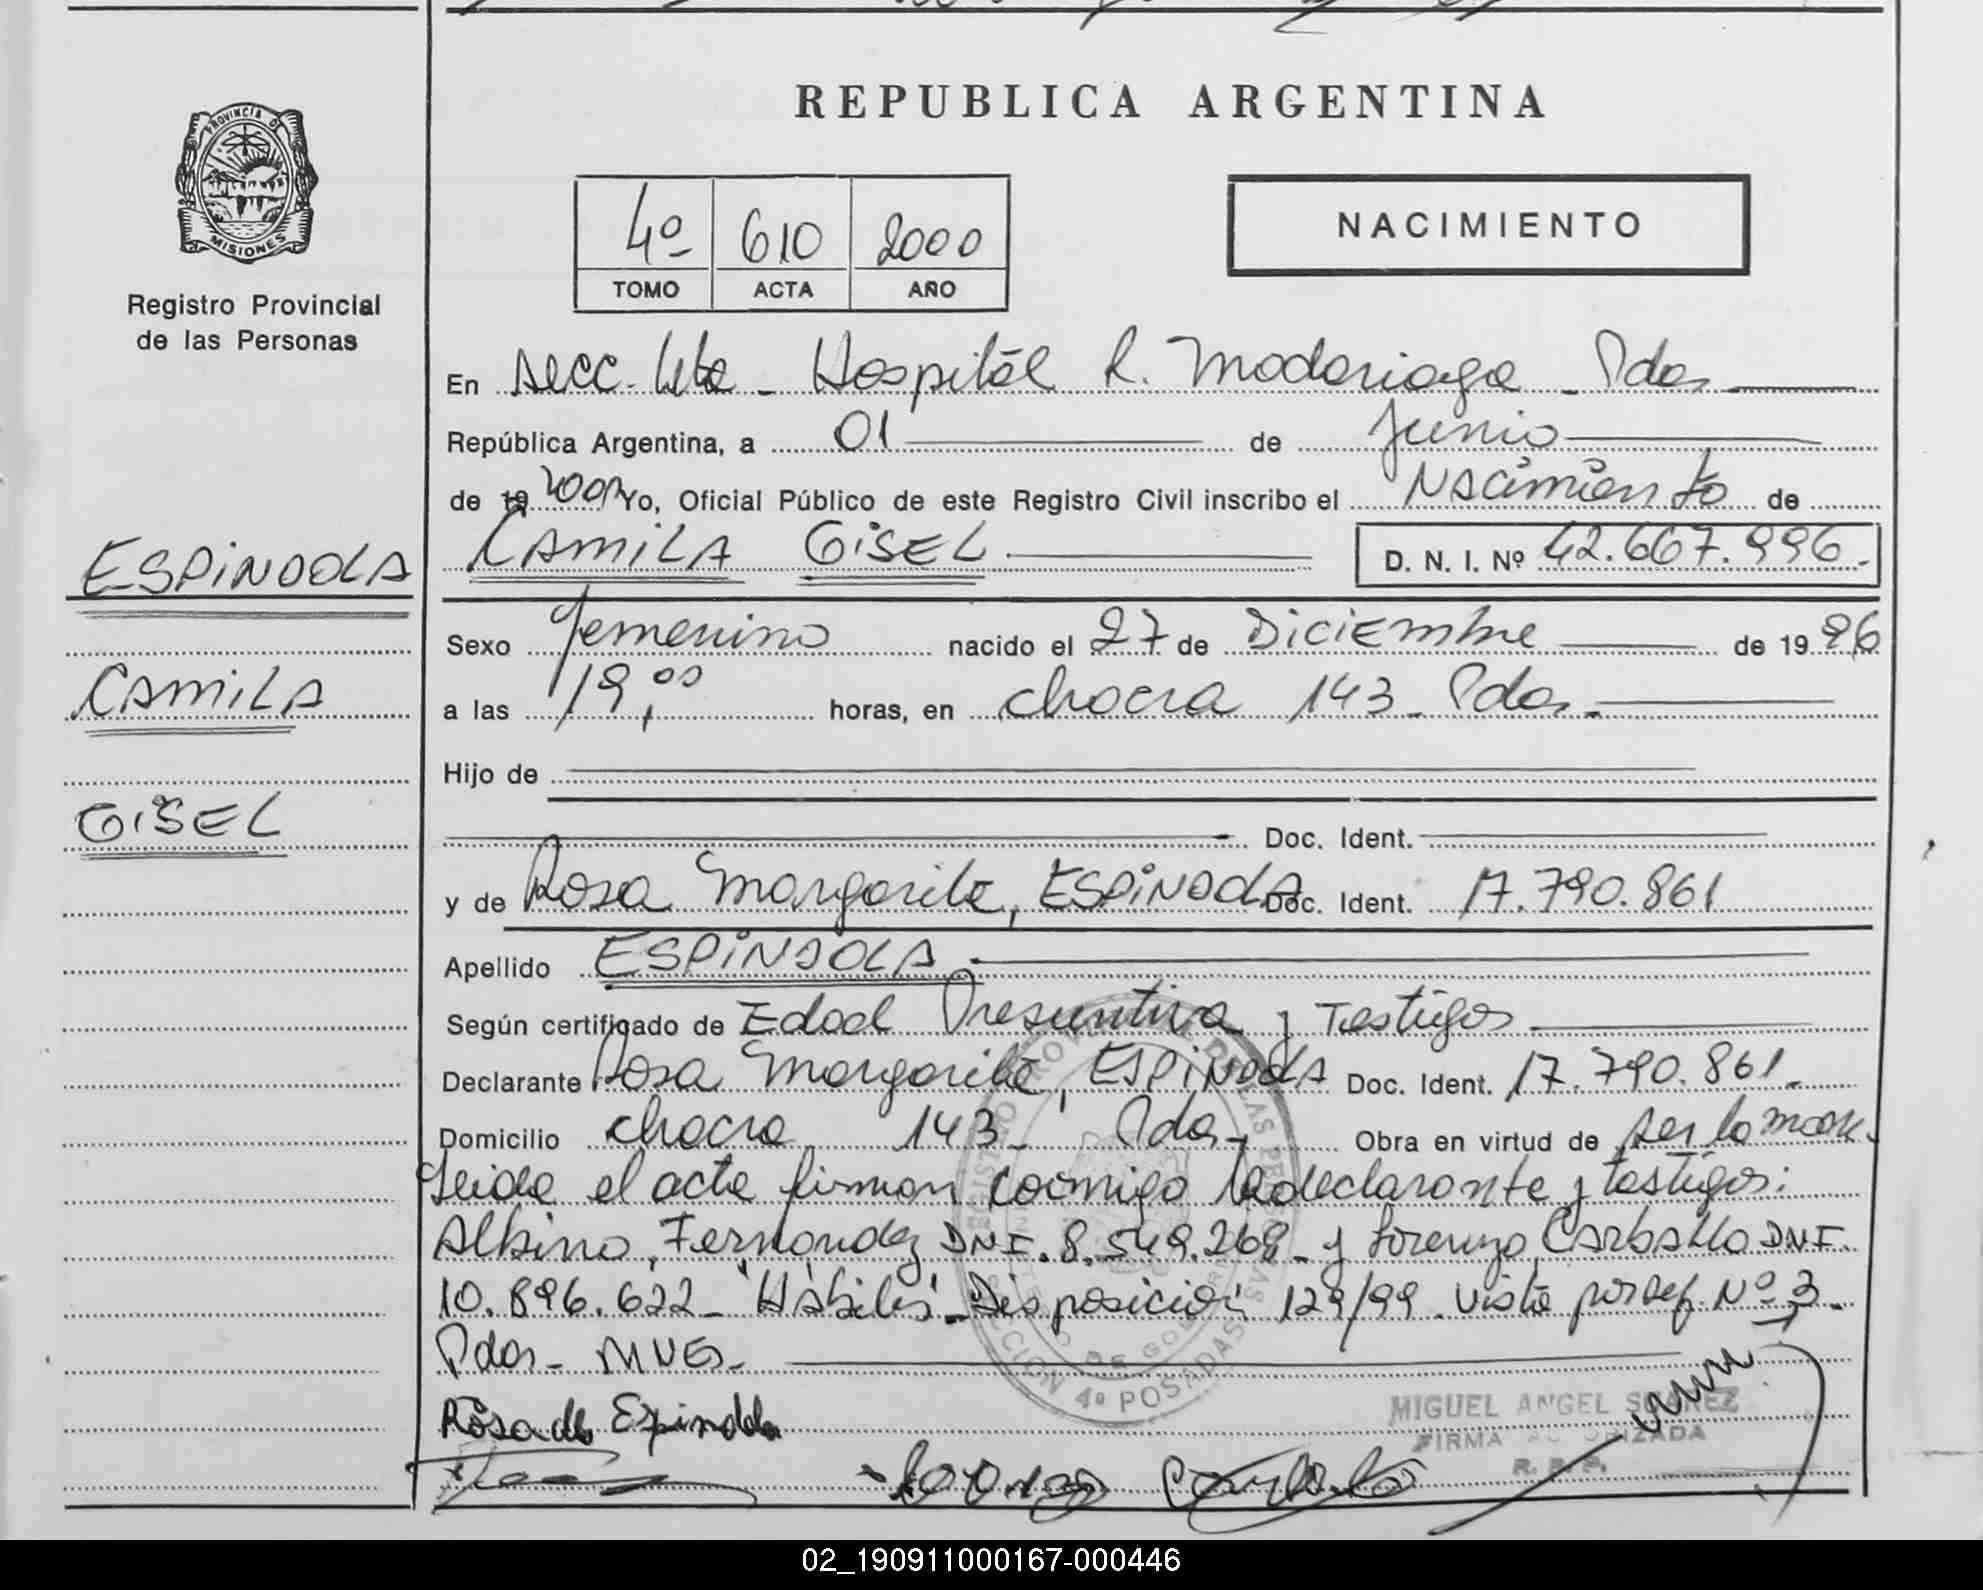 REPUBLICA ARGENTINA
PROVINCIA DE MISIONES
Registro Provincial
de las Personas
4º 610 2000
TOMO ACTA AÑO
NACIMIENTO
En secc. 4ta - Hospital R. Madariaga - Pdas
República Argentina, a 01 de Junio
de 19 2000 Yo, Oficial Público de este Registro Civil inscribo el Nacimiento de
ESPINDOLA
CAMILA GISEL D. N. I. Nº 42.667.996.-
Sexo femenino nacido el 27 de Diciembre de 1996
CAMILA
a las 19,00 horas, en chacra 143 - Pdas.-
Hijo de
GISEL
Doc. Ident.
y de Rosa Margarita, ESPINDOLA Doc. Ident. 17.790.861
Apellido ESPINDOLA
Según certificado de Edad Presuntiva y Testigos
Declarante Rosa Margarita, ESPINDOLA Doc. Ident. 17.790.861.-
Domicilio chacra 143 - Pdas.- Obra en virtud de ser la madre.
Leida el acta firman conmigo la declarante y testigos:
Albino, Fernandez DNI. 8.549.269 - y Lorenzo, Carballo DNI.
10.896.622 - "Hábiles" - Disposición 129/99. Visto por Def. Nº 3.-
Pdas - MNES.-
REGISTRO PROVINCIAL DE LAS PERSONAS
SECCION 4ª POSADAS
Rosa de Espindola
MIGUEL ANGEL SUAREZ
FIRMA AUTORIZADA
R. P. P.
Lorenzo Carballo
02_190911000167-000446